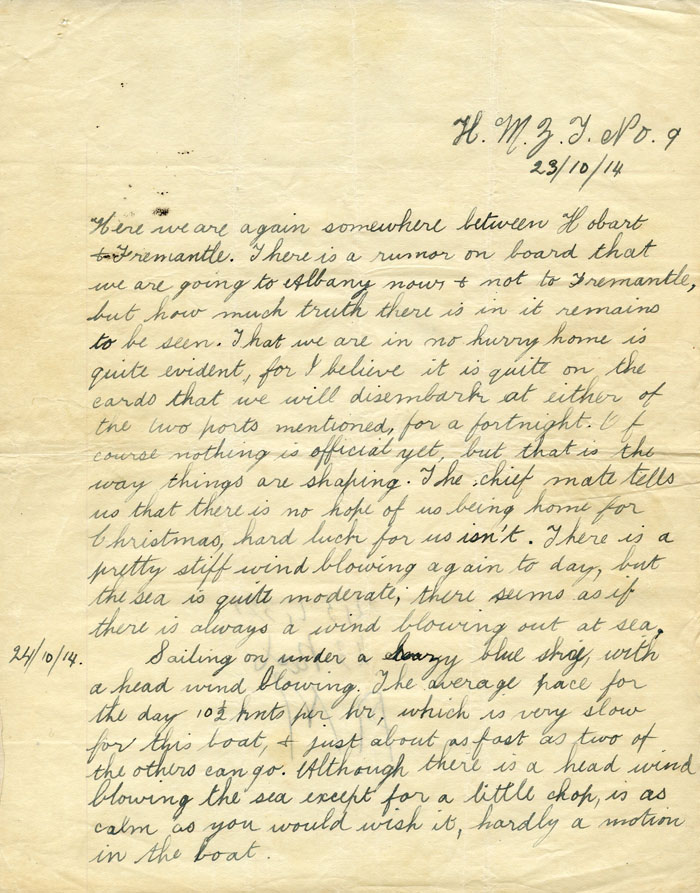 H. M. Z. T. No. 9
23/10/14
Here we are again somewhere between Hobart
& Fremantle. There is a rumor on board that
we are going to Albany now & not to Fremantle,
but how much truth there is in it remains
to be seen. That we are in no hurry home is
quite evident, for I believe it is quite on the
cards that we will disembark at either of
the two ports mentioned, for a fortnight. Of
course nothing is official yet, but that is the
way things are shaping. The chief mate tells
us that there is no hope of us being home for
Christmas, hard luck for us isn't. There is a
pretty stiff wind blowing again to day, but
the sea is quite moderate; there seems as if
there is always a wind blowing out at sea.
24/10/14. Sailing on under a blue sky, with
a head wind blowing. The average pace for
the day 10½ knts per hr, which is very slow
for this boat, & just about as fast as two of
the others can go. Although there is a head wind
blowing the sea except for a little chop, is as
calm as you would wish it, hardly a motion
in the boat.